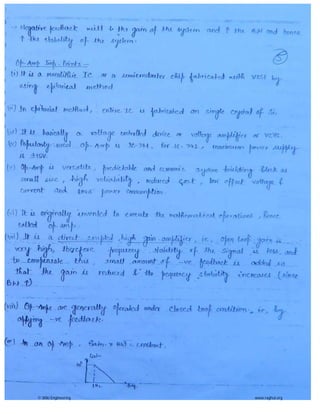 -> Negative feedback will ↓ the gain of the system and ↑ the BW and hence
↑ the stability of the system.
5
Op-Amp Imp. Points -
(i) It is a monolithic IC or a semiconductor chip fabricated with VLSI by
using epitaxial method
(ii) In epitaxial method, entire IC is fabricated on single crystal of Si.
(iii) It is basically a voltage controlled device or voltage amplifier or VCVS.
(iv) Popularly used Op-Amp is IC-741, for IC-741, maximum power supply
is ±15V.
(v) Op-Amp is versatile, predictable and economic system building block as
small size, high reliability, reduced cost, low offset voltage &
current and low power consumption.
(vi) It is originally invented to execute the mathematical operations, hence
called op-amp.
(vii) It is a direct coupled high gain amplifier, i.e., open loop gain is
very high, therefore frequency stability of the signal is less, and
to compensate this, small amount of -ve feedback is added so
that the gain is reduced & the frequency stability increases (since
BW ↑)
(viii) Op-Amps are generally operated under closed loop condition, i.e., by
applying -ve feedback.
(ix) In an op-Amp, Gain × BW = constant.
Gain
freq.
www.raghul.org